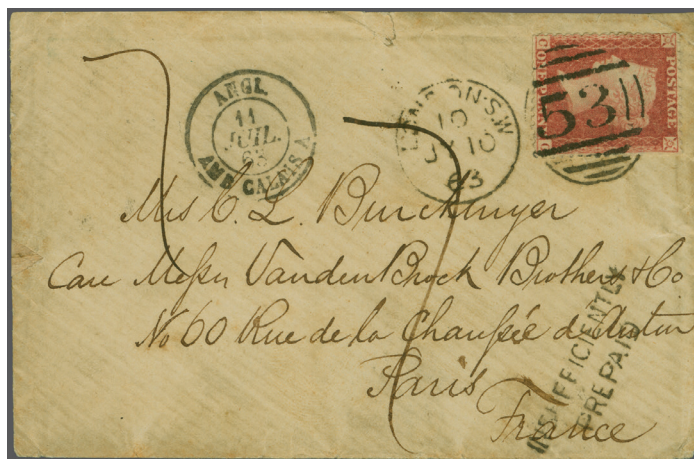 POSTAGE
ANGL.
11
JUIL.
63
AMB. CALAIS A
LONDON·S.W
10
JY 10
63
53
Mrs C. L.
Care Messrs VandenBrock Brothers & Co
No 60 Rue de la Chaussée d'Antin
Paris
France
INSUFFICIENTLY
PREPAID
7
7